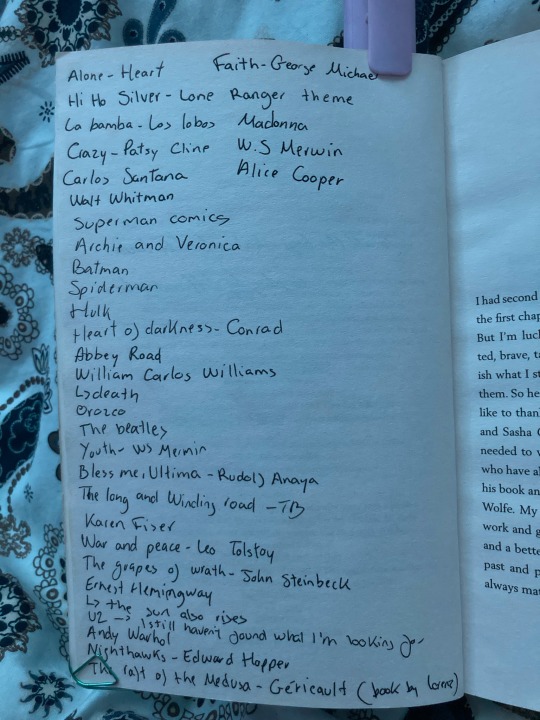 Alone - Heart
Faith - George Michael
Hi Ho Silver - Lone Ranger theme
La bamba - Los lobos
Madonna
Crazy - Patsy Cline
W.S Merwin
Carlos Santana
Alice Cooper
Walt Whitman
Superman comics
Archie and Veronica
Batman
Spiderman
Hulk
Heart of darkness - Conrad
Abbey Road
William Carlos Williams
↳ death
Orozco
The beatles
Youth - WS Merwin
Bless me, Ultima - Rudolf Anaya
The long and Winding road - TB
Karen Fiser
War and peace - Leo Tolstoy
The grapes of wrath - John Steinbeck
Ernest Hemingway
↳ the sun also rises
U2 → I still haven't found what I'm looking for
Andy Warhol
Nighthawks - Edward Hopper
The raft of the Medusa - Géricault (book by

I had second
the first chap
But I'm luck
ted, brave, ta
ish what I st
them. So he
like to than
and Sasha
needed to
who have al
his book an
Wolfe. My
work and g
and a bette
past and p
always mat